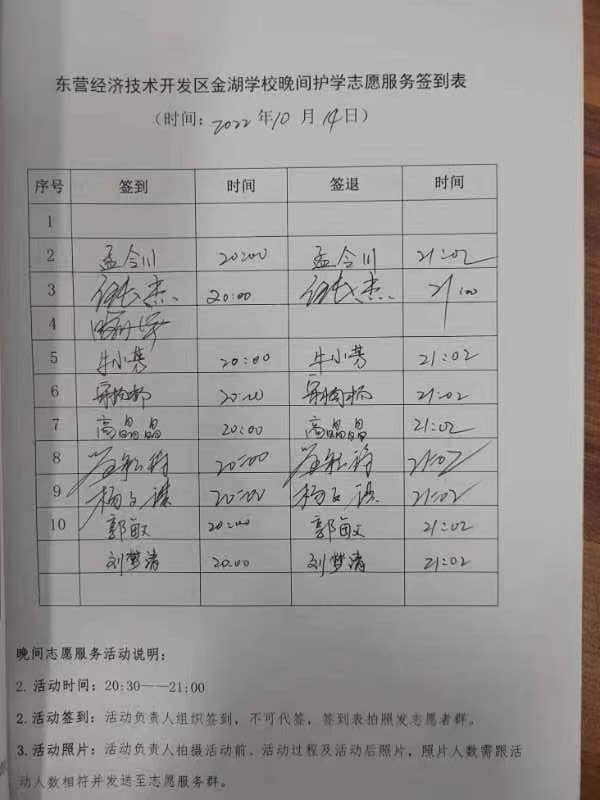 东营经济技术开发区金湖学校晚间护学志愿服务签到表
（时间：2022年10月14日）
序号 签到 时间 签退 时间
1
2 孟令川 20:00 孟令川 21:02
3 杰 20:00 杰 21:00
4
5 牛小芳 20:00 牛小芳 21:02
6 20:00 21:02
7 高晶晶 20:00 高晶晶 21:02
8 20:00 21:02
9 杨 20:00 杨 21:02
10 郭敏 20:00 郭敏 21:02
刘梦涛 20:00 刘梦涛 21:02
晚间志愿服务活动说明：
2. 活动时间：20:30——21:00
2. 活动签到：活动负责人组织签到，不可代签，签到表拍照发志愿者群。
3. 活动照片：活动负责人拍摄活动前、活动过程及活动后照片，照片人数需跟活
动人数相符并发送至志愿服务群。